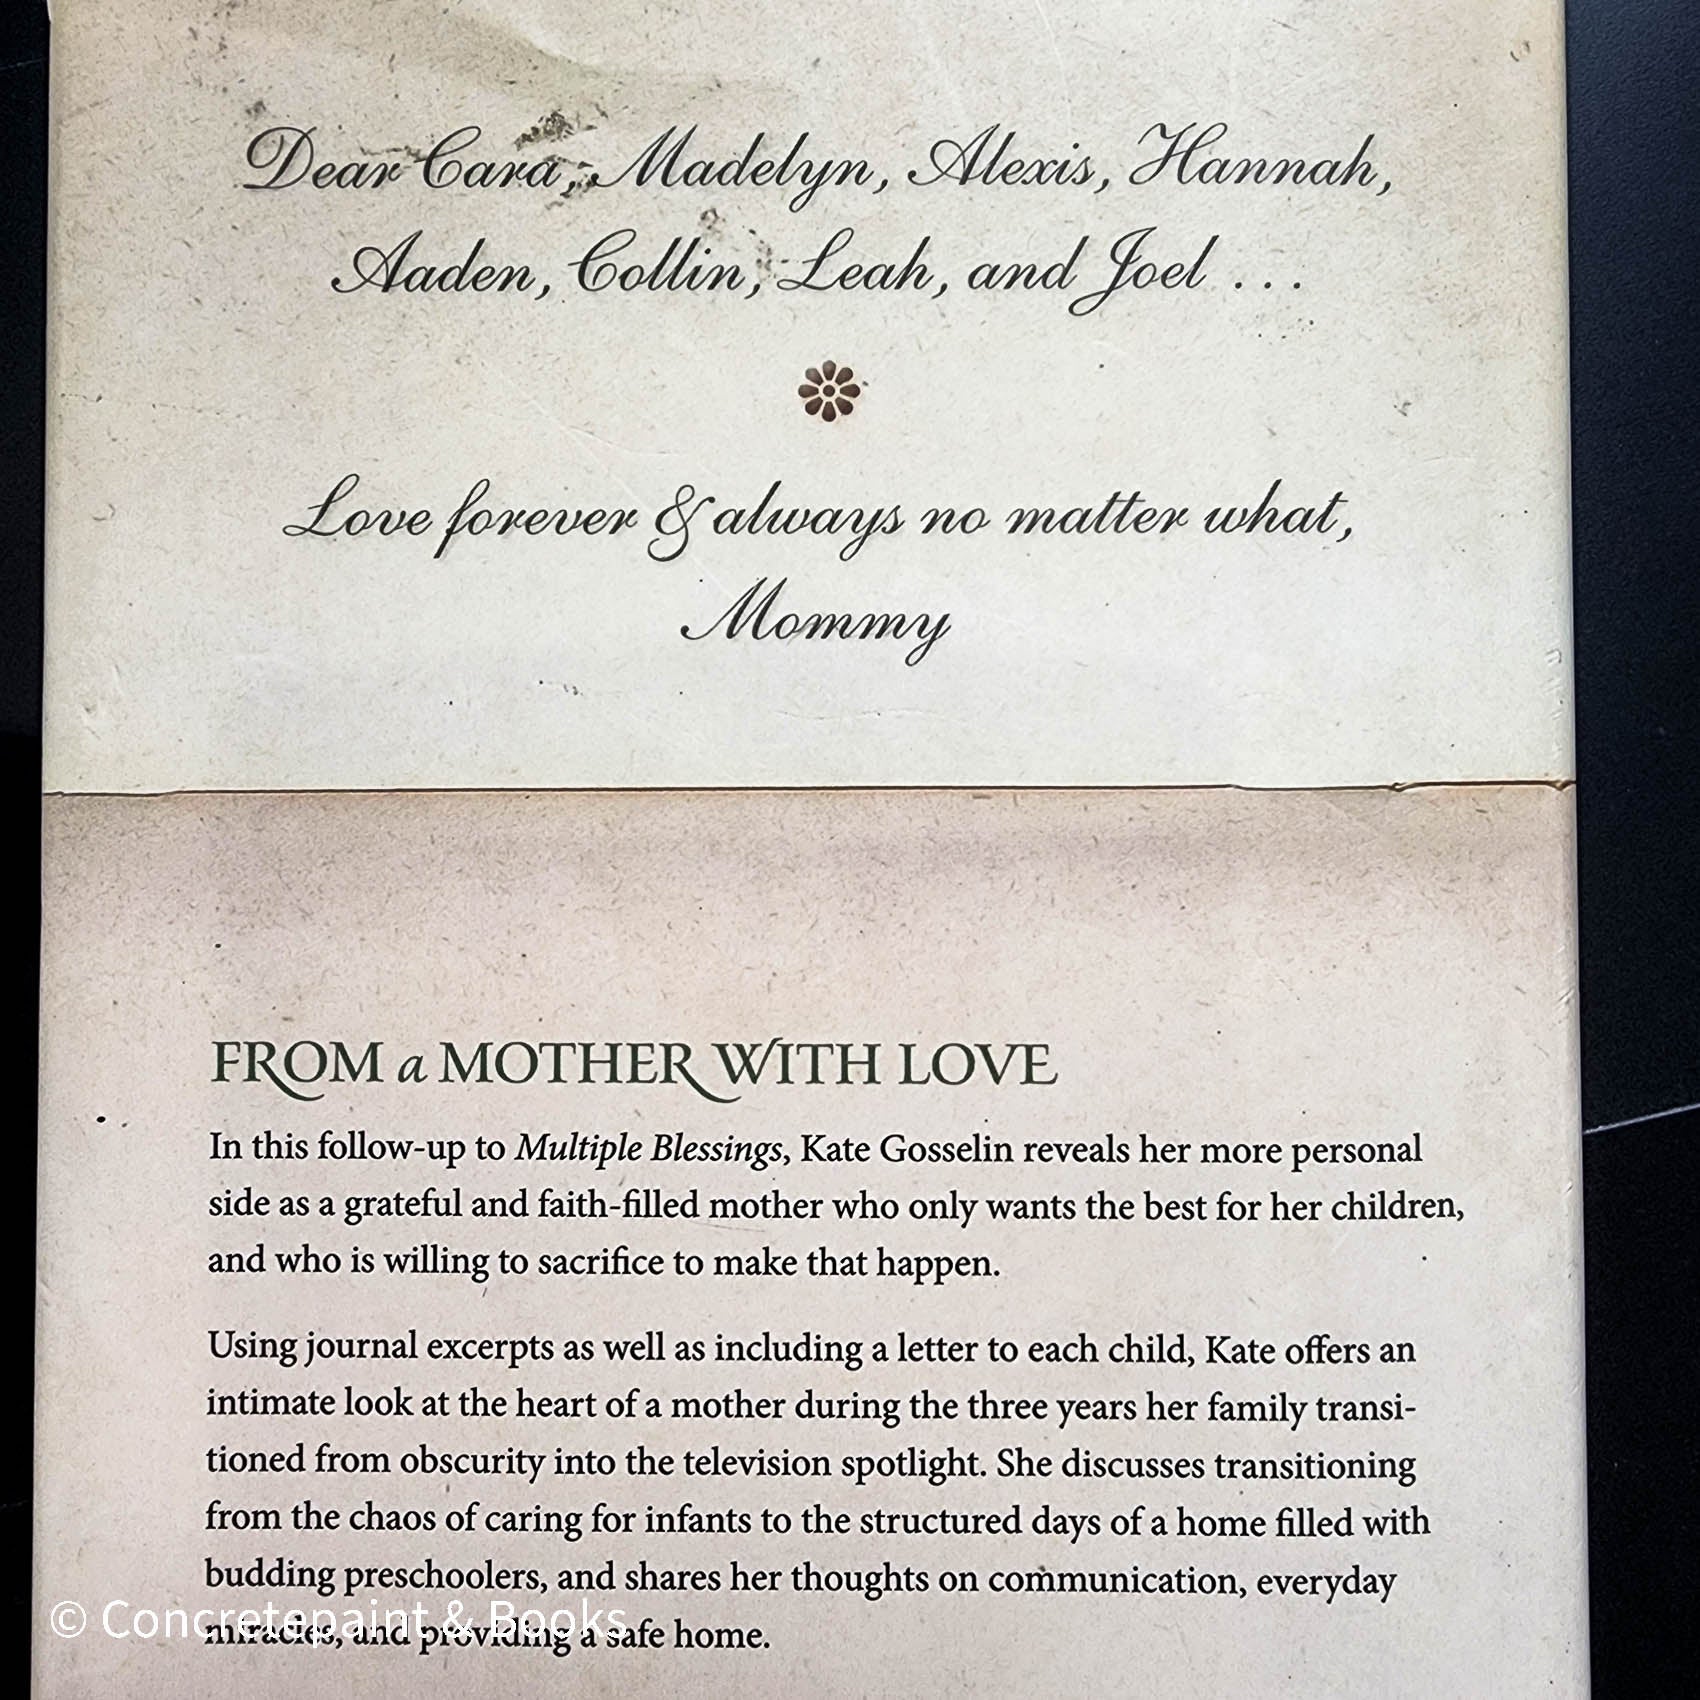 Dear Cara, Madelyn, Alexis, Hannah,
Aaden, Collin, Leah, and Joel ...
Love forever & always no matter what,
Mommy
FROM a MOTHER WITH LOVE
In this follow-up to Multiple Blessings, Kate Gosselin reveals her more personal
side as a grateful and faith-filled mother who only wants the best for her children,
and who is willing to sacrifice to make that happen.
Using journal excerpts as well as including a letter to each child, Kate offers an
intimate look at the heart of a mother during the three years her family transi-
tioned from obscurity into the television spotlight. She discusses transitioning
from the chaos of caring for infants to the structured days of a home filled with
budding preschoolers, and shares her thoughts on communication, everyday
miracles, and providing a safe home.
© Concretepaint & Books